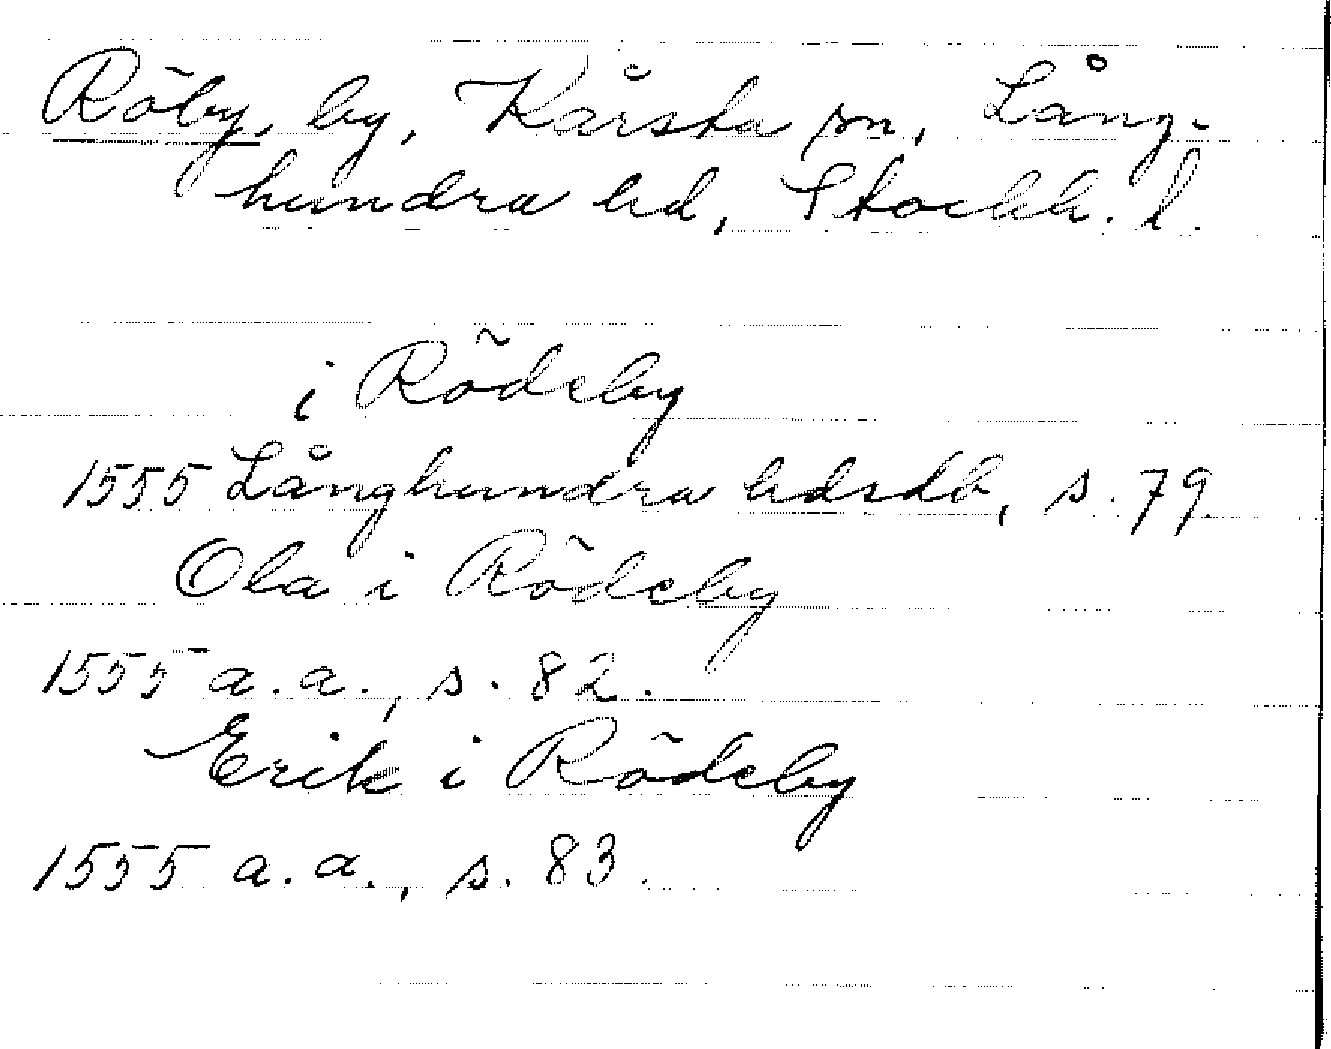 Röby, by, Kårsta sn, Lång-
hundra hd, Stockh. l.
i Rödeby
1555 Långhundra hdsdb, s. 79.
Ola i Rödeby
1555 a.a., s. 82.
Erik i Rödeby
1555 a.a., s. 83.